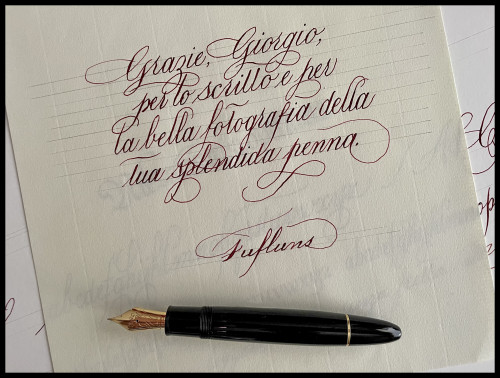 Grazie, Giorgio,
per lo scritto e per
la bella fotografia della
tua splendida penna.
Tufluns